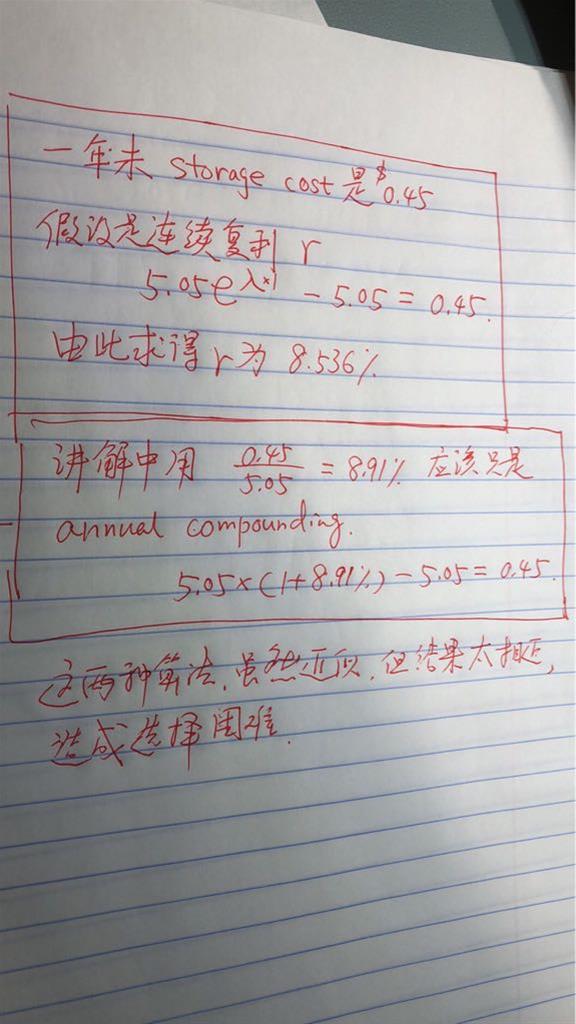 一年末 storage cost 是 $0.45
假设是连续复利 r
5.05e^λ×1 - 5.05 = 0.45.
由此求得 r 为 8.536%
讲解中用 0.45/5.05 = 8.91% 应该只是
annual compounding.
5.05×(1+8.91%) - 5.05 = 0.45.
这两种算法,虽然近似,但结果太接近,
造成选择困难.